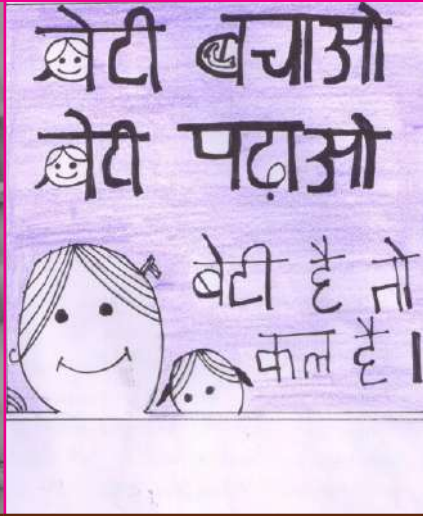 बेटी बचाओ
बेटी पढ़ाओ
बेटी है तो
कल है।